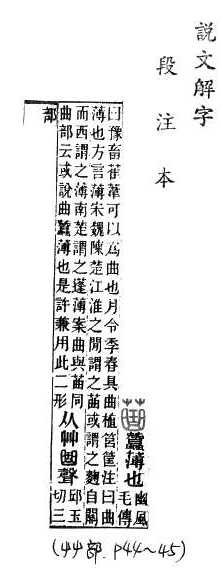 説文解字
段注本
蠶薄也豳風
毛傳
曰豫畜萑葦可以爲曲也月令季春具曲植筥筐注曰曲
薄也方言薄宋魏陳楚江淮之閒謂之䒼或謂之麴自關
而西謂之薄南楚謂之蓬薄案曲與䒼同
曲部云或說曲蠶薄也是許兼用此二形
从艸曲聲
邱玉
切三
部
(艸部. P44~45)